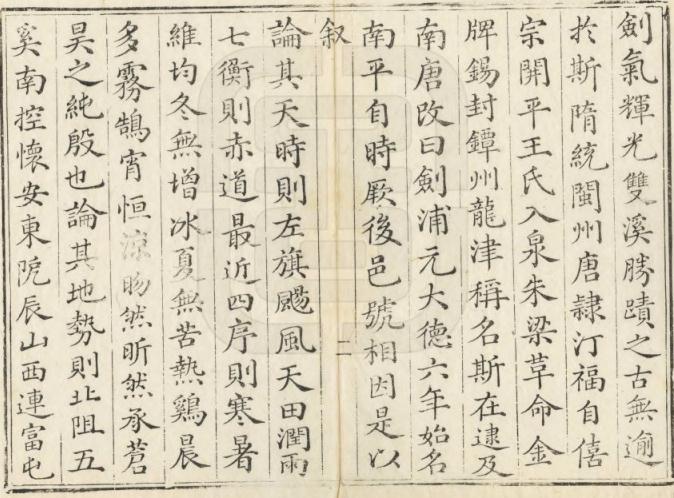 劍氣輝光雙溪勝蹟之古無逾
扵斯隋統閩州唐隸汀福自僖
宗開平王氏入泉朱梁革命金
牌錫封鐔州龍津稱名斯在逮及
南唐改曰劍浦元大德六年始名
南平自時厥後邑號相因是以
敘
二
論其天時則左旗颺風天田潤雨
七衡則赤道最近四序則寒暑
維均冬無增冰夏無苦熱鷄晨
多霧鵠宵恒涼昒然昕然承蒼
昊之純殷也論其地勢則北阻五
奚南控懷安東阸辰山西連富屯